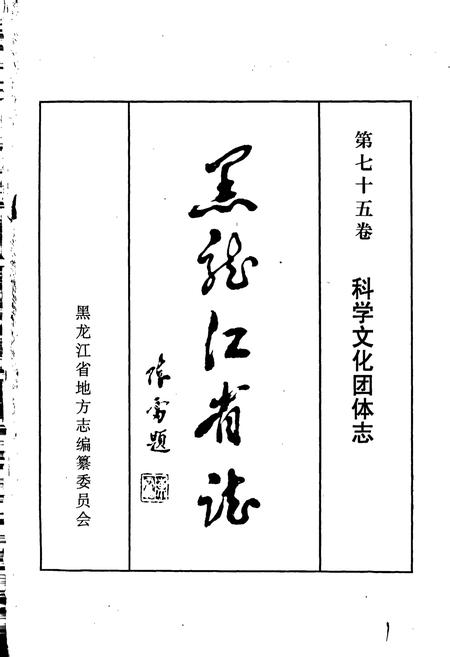 第七十五卷
科学文化团体志
黑龙江省志
陈雷题
黑龙江省地方志编纂委员会